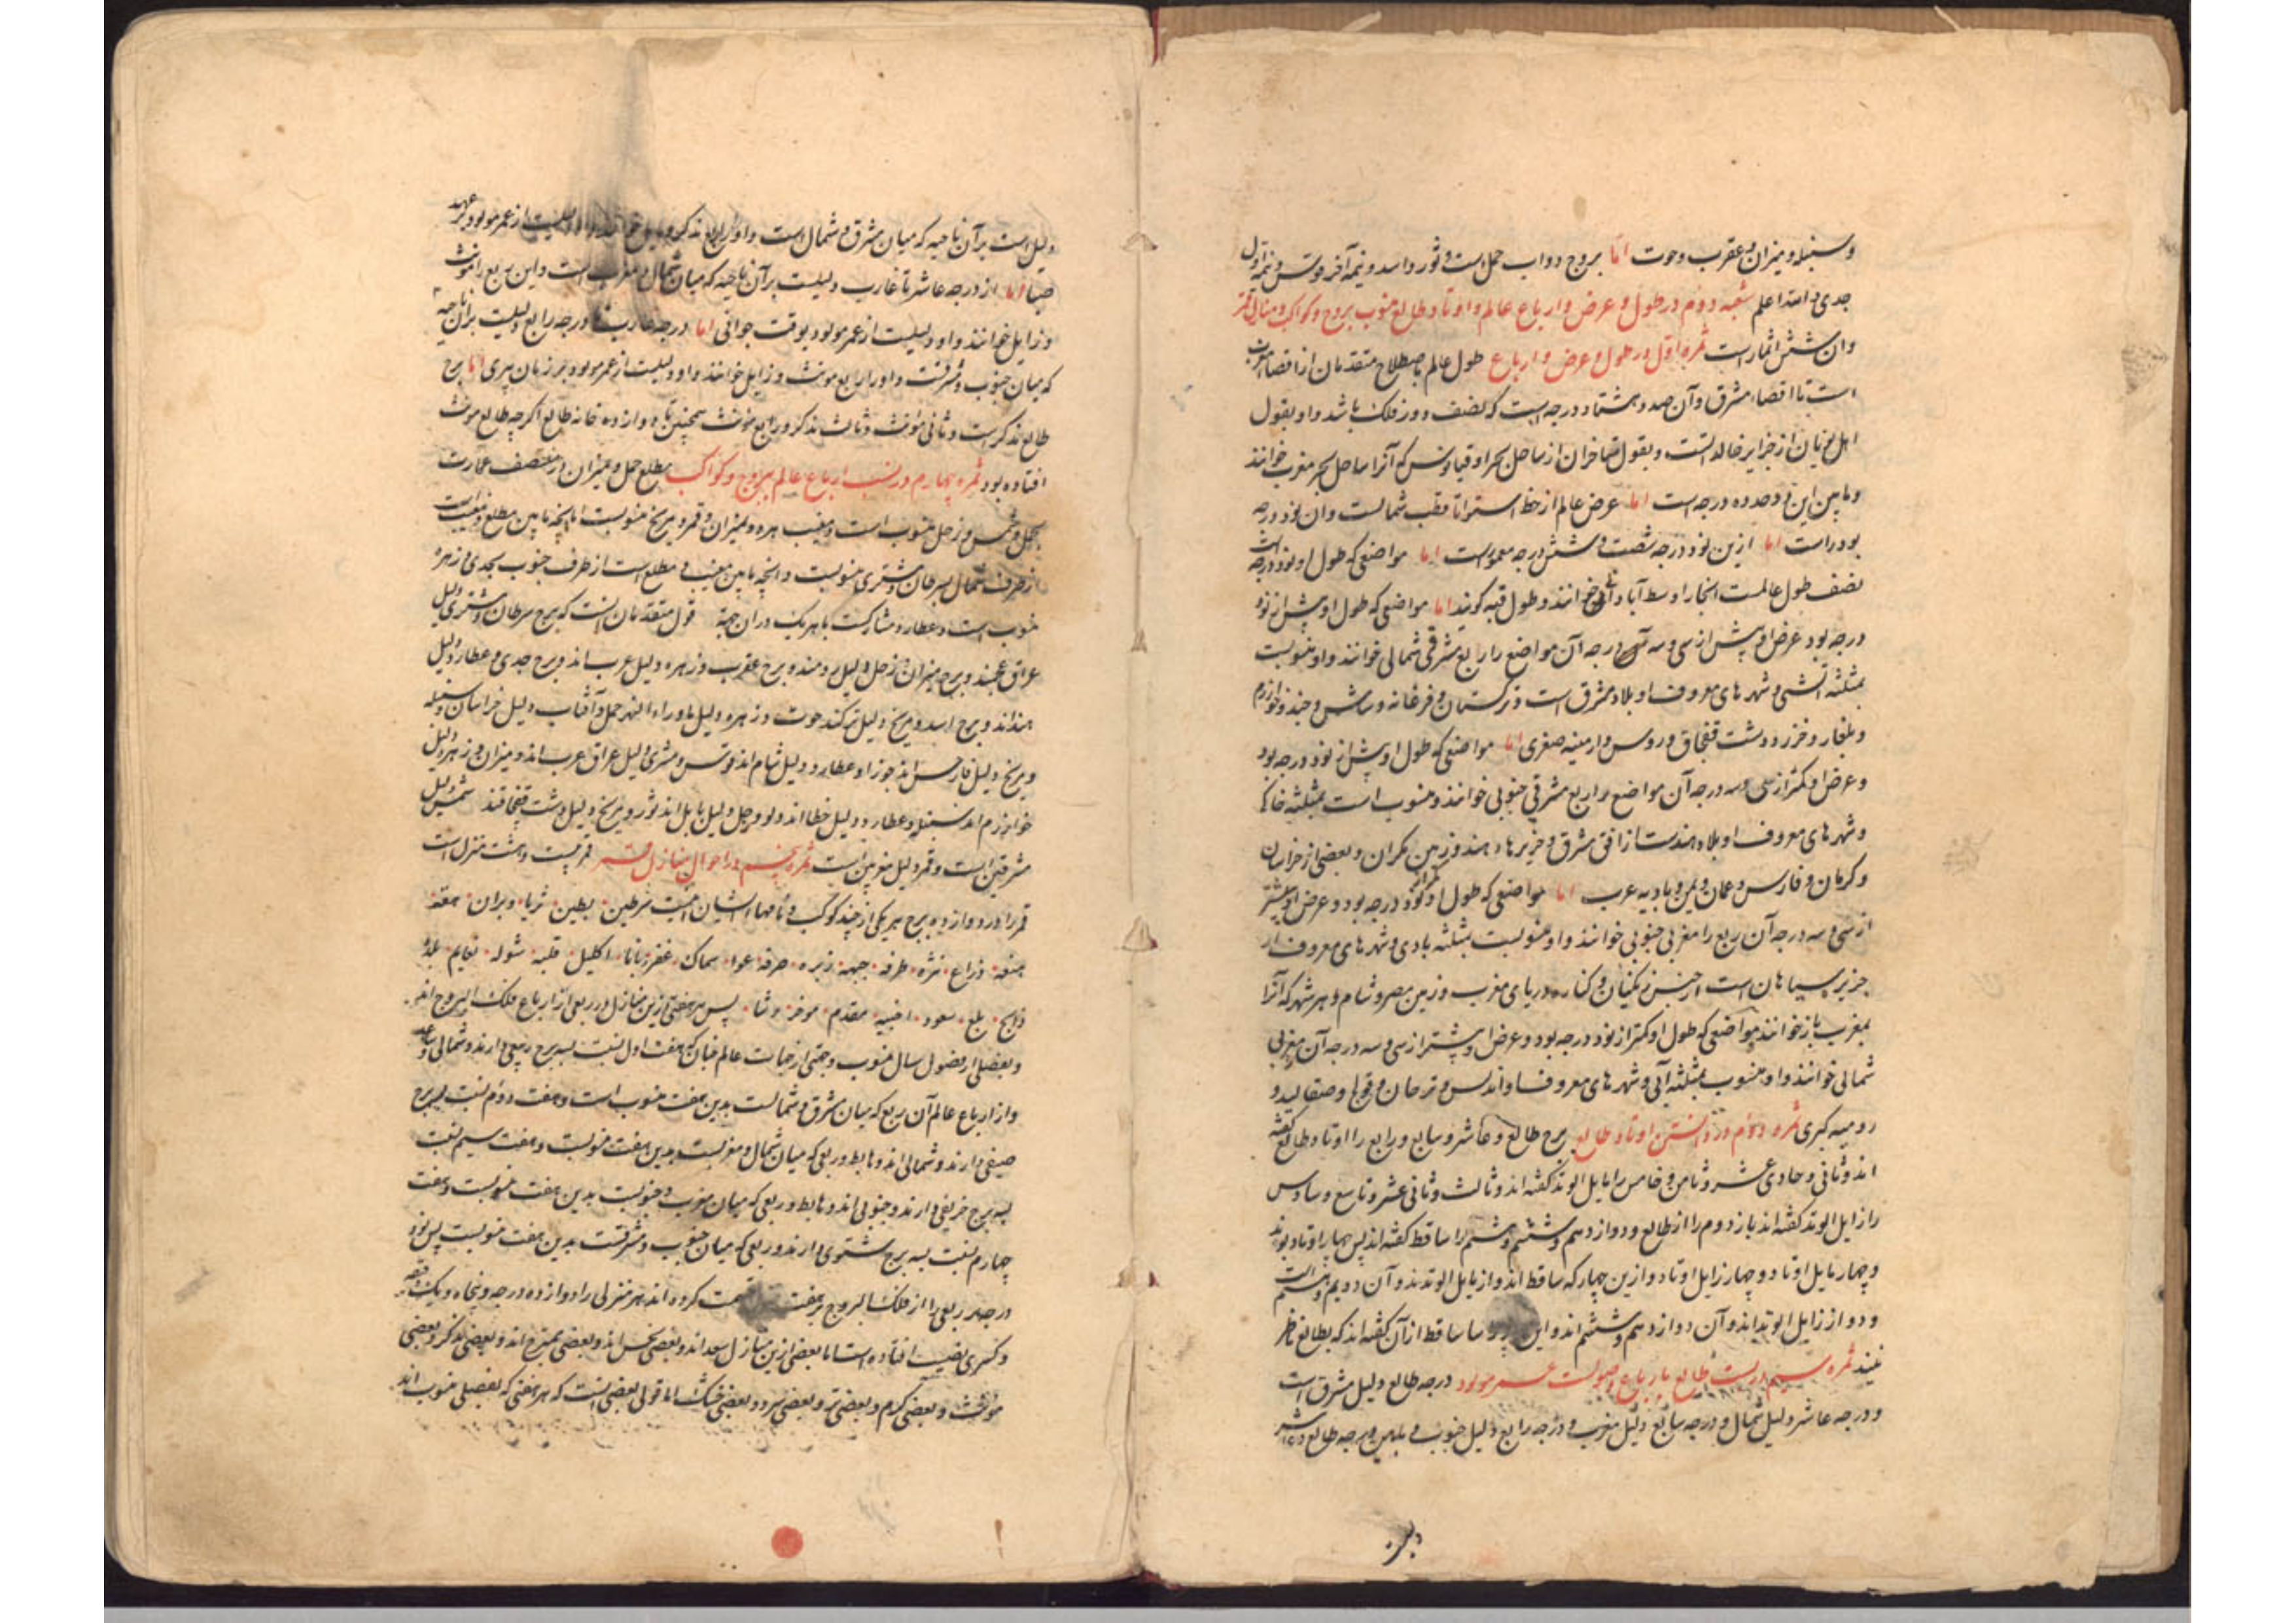 وسنبله و میزان و عقرب و حوت اما بروج دواب حمل است و ثور و اسد و نیمه آخر قوس و نیمه اول
جدی والله اعلم شعبه دوم در طول و عرض و ارباع عالم و اوتاد طالع منسوب بروج و کواکب و منازل قمر
وان شش اثمار است ثمره اول در طول و عرض و ارباع طول عالم باصطلاح متقدمان از اقصاء مغرب
است تا اقصاء مشرق و آن صد و هشتاد درجه است که نصف دور فلک باشد و او بقول
اهل یونان از جزایر خالداتست و بقول متاخران از ساحل بحر اوقیانوس که آنرا ساحل بحر مغرب خوانند
و مابین این دو حد ده درجه است اما عرض عالم از خط استوا تا قطب شمالست وان نود درجه
بود راست اما ازین نود درجه شصت و شش درجه معمورست اما مواضعی که طول او نود درجه است
نصف طول عالمست انجا را وسط آبادانی خوانند و طول قبه گویند اما مواضعی که طول او بیش از نود
درجه بود عرض او بیش از سی و سه درجه آن مواضع را ربع مشرقی شمالی خوانند و او منسوبست
بمثلثه آتشی و شهرهای معروف او بلاد مشرق است و ترکستان و فرغانه و شاش و خجند و خوارزم
و بلغار و خزر و دشت قفچاق و روس و ارمینه صغری اما مواضعی که طول او بیش از نود درجه بود
و عرض او کمتر از سی و سه درجه آن مواضع را ربع مشرقی جنوبی خوانند و منسوب است بمثلثه خاکی
و شهرهای معروف او بلاد هندست از افق مشرق و جزیرها هند و زمین مکران و بعضی از خراسان
و کرمان و فارس و عمان و یمن و بادیه عرب اما مواضعی که طول او کمتر از نود درجه بود و عرض او بیشتر
از سی و سه درجه آن ربع را مغربی جنوبی خوانند و او منسوبست بمثلثه بادی و شهرهای معروف او
جزیر سیاهان است از جنس زنگیان و کناره دریای مغرب و زمین مصر و شام و هر شهر که آنرا
بمغرب باز خوانند مواضعی که طول او کمتر از نود درجه بود و عرض او بیشتر از سی و سه درجه آن مغربی
شمالی خوانند و او منسوب بمثلثه آبی و شهرهای معروف او اندلس و ترخان و صقالیه و
رومیه کبری ثمره دوم در دانستن اوتاد طالع برج طالع و عاشر و سابع و رابع را اوتاد طالع گفته
اند و ثانی و حادی عشر و ثامن و خامس را مایل الوتد گفته اند و ثالث و ثانی عشر و تاسع و سادس
را زایل الوتد گفته اند باز دوم را از طالع و دوازدهم و ششم و هشتم را ساقط گفته اند پس چهار اوتاد بوند
و چهار مایل اوتاد و چهار زایل اوتاد و ازین چهار که ساقط اند دو از مایل الوتدند و آن دویم و هشتم است
و دو از زایل الوتد اند و آن دوازدهم و ششم اند و این چهار را ساقط از آن گفته اند که بطالع ناظر
نیند ثمره سیم در نسبت طالع بارباع عمر مولود درجه طالع دلیل مشرق است
و درجه عاشر دلیل شمال و درجه سابع دلیل مغرب و درجه رابع دلیل جنوب و مابین درجه طالع و عاشر
دلیل است بر آن ناحیه که میان مشرق و شمال است و او را ربع مذکر و مایل خوانند و او دلیلست از عمر مولود بر عهد
صبا اما از درجه عاشر تا غارب دلیلست بر آن ناحیه که میان شمال و مغرب است و این ربع را مونث
و زایل خوانند و او دلیلست از عمر مولود بوقت جوانی اما درجه غارب تا درجه رابع دلیلست بران ناحیه
که میان جنوب و مشرقست و او را ربع مونث و زایل خوانند و او دلیلست از عمر مولود بر زمان پیری اما برج
طالع مذکر است و ثانی مونث و ثالث مذکر و رابع مونث همچنین تا دوازده خانه طالع اگر چه طالع مونث
افتاده بود ثمره چهارم در نسب ارباع عالم ببروج و کواکب مطلع حمل و میزان در منتصف عمارت
بحمل و شمس و زحل منسوب است و مغیب زهره و میزان و قمر و مریخ منسوبست اما انچه مابین مطلع و مغیب است
از طرف شمال بسرطان و مشتری منسوبست و انچه مابین مغیب و مطلع است از طرف جنوب بجدی و زهره
منسوب است و عطارد مشارکست با هر یک دران جهة قول متقدمان انست که برج سرطان و مشتری دلیل
عراق عجمند و برج میزان و زحل دلیل رومند و برج عقرب و زهره دلیل عرب اند و برج جدی و عطارد دلیل
هنداند و برج اسد و مریخ دلیل ترکند حوت و زهره دلیل ماوراء النهر حمل و آفتاب دلیل خراسان و سنبله
و مریخ دلیل فارس اند جوزا و عطارد دلیل شام اند قوس و مشتری دلیل عراق عرب اند و میزان و زهره دلیل
خوارزم اند سنبله و عطارد دلیل خطا اند و دلو و زحل دلیل بابل اند ثور و مریخ دلیل دشت قفچاقند شمس دلیل
مشرقین است و قمر دلیل مغربین است ثمره پنجم در احوال منازل قمر قمر بیست و هشت منزل است
قمر را در دوازده برج هر یکی از چند کوکب و نامهاء ایشان اینست شرطین بطین ثریا دبران هقعه
هنعه ذراع نثره طرفه جبهه زبره صرفه عوا سماک غفر زبانا اکلیل قلبه شوله نعایم بلده
ذابح بلع سعود اخبیه مقدم موخر رشا پس هر هفتی ازین منازل در ربعی از ارباع فلک البروج افتد
و بفصلی از فصول سال منسوب و جهتی از جهات عالم چنانکه هفت اول نسبت بسه برج ربیعی دارند و شمالی و صاعد
و از ارباع عالم آن ربع که میان مشرق و شمالست بدین هفت منسوب است و هفت دوم نسبت بسه برج
صیفی دارند و شمالی اند و هابط و ربعی که میان شمال و مغربست بدین هفت منسوبست و هفت سیم نسبت
بسه برج خریفی دارند و جنوبی اند و هابط و ربعی که میان مغرب و جنوبست بدین هفت منسوبست و هفت
چهارم نسبت بسه برج شتوی دارند و ربعی که میان جنوب و مشرقست بدین هفت منسوبست پس نود
درجه ربعی را از فلک البروج بر هفت قسمت کرده اند هر منزلی را دوازده درجه و پنجاه و یک دقیقه
و کسری نصیب افتاده است اما بعضی ازین منازل سعد اند و بعضی نحس اند و بعضی ممتزج اند و بعضی مذکر و بعضی
مونث و بعضی گرم و بعضی تر و بعضی سرد و بعضی خشک اما قول بعضی انست که هر هفتی که بفصلی منسوب اند